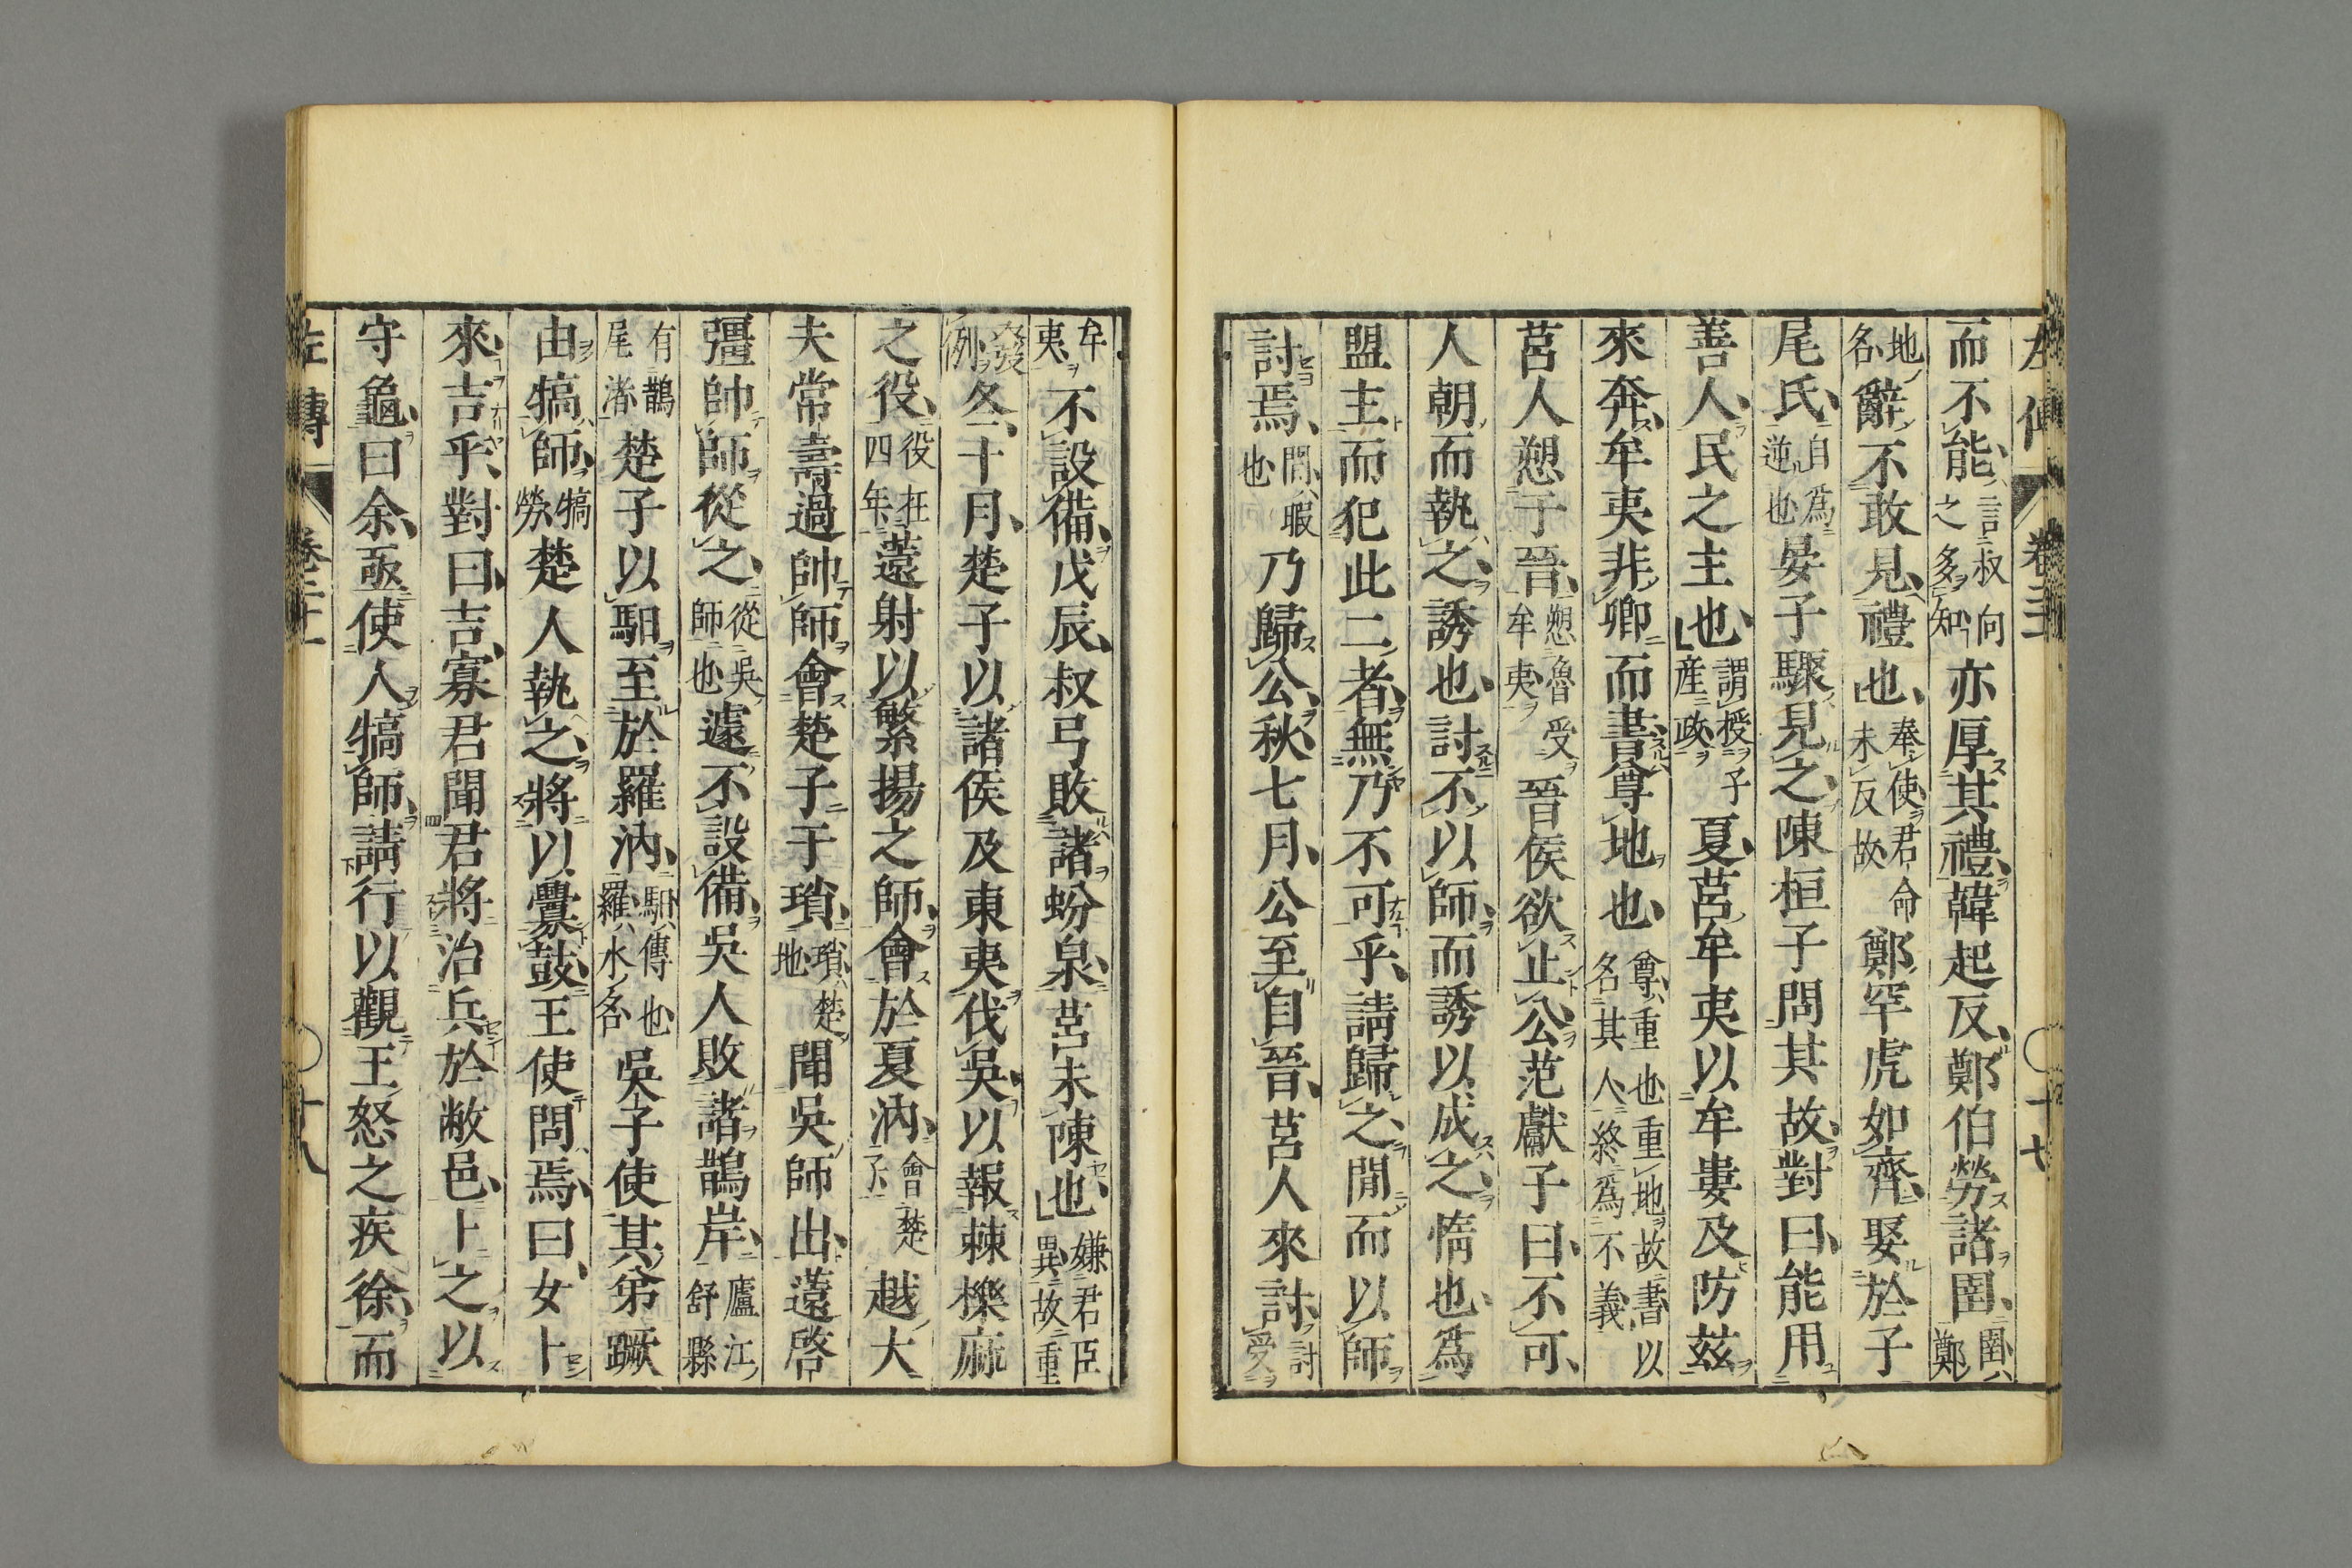 左傳 卷二十一 十七
而不能言叔向之多知亦厚其禮韓起反鄭伯勞諸圉圉鄭
地名辭不敢見禮也奉使君命未反故鄭罕虎如齊娶於子
尾氏自爲逆也晏子驟見之陳桓子問其故對曰能用
善人民之主也謂授子産政夏莒牟夷以牟婁及防茲
來奔牟夷非卿而書尊地也尊重也重地故書以名其人終爲不義
莒人愬于晉愬魯受牟夷晉侯欲止公范獻子曰不可
人朝而執之誘也討不以師而誘以成之惰也爲
盟主而犯此二者無乃不可乎請歸之閒而以師
討焉閒暇也乃歸公秋七月公至自晉莒人來討討受
牟夷不設備戊辰叔弓敗諸蚡泉莒未陳也嫌君臣異故重
發例冬十月楚子以諸侯及東夷伐吳以報棘櫟麻
之役役在四年薳射以繁揚之師會於夏汭會楚子越大
夫常壽過帥師會楚子于瑣瑣楚地聞吳師出薳啓
彊帥師從之從吳師也遽不設備吳人敗諸鵲岸廬江舒縣
有鵲尾渚楚子以馹至於羅汭馹傳也羅水名吳子使其弟蹶
由犒師犒勞楚人執之將以釁鼓王使問焉曰女卜
來吉乎對曰吉寡君聞君將治兵於敝邑卜之以
守龜曰余亟使人犒師請行以觀王怒之疾徐而
左傳 卷二十一 十八